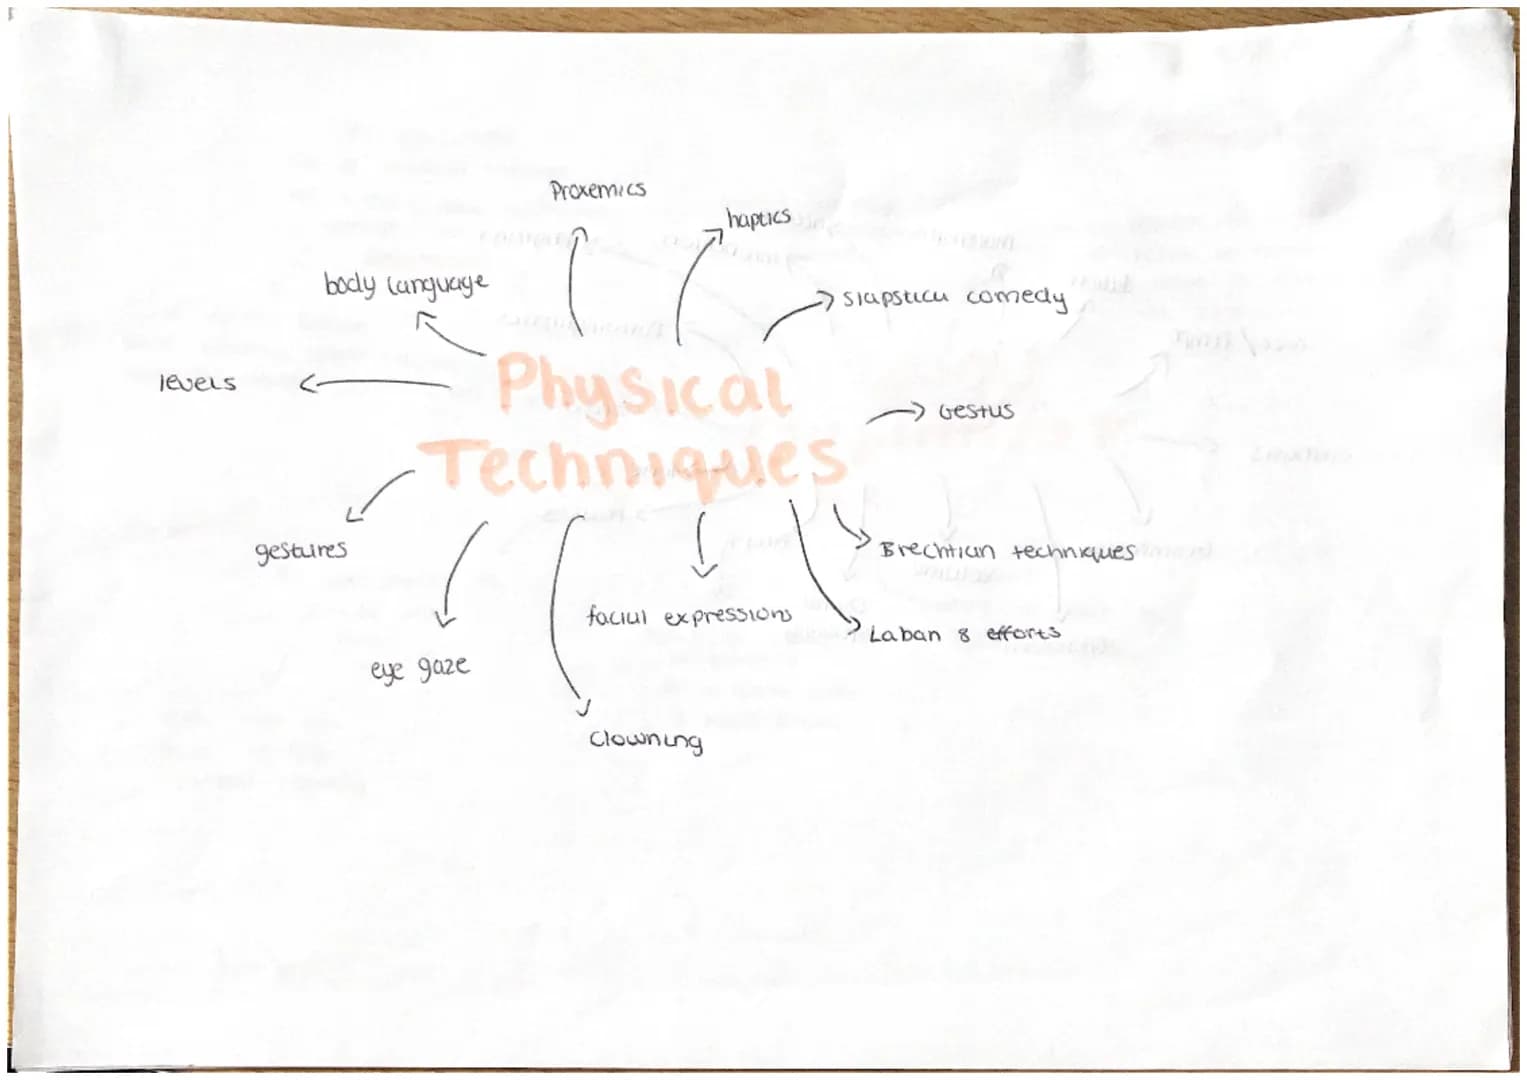 Proxemics
haptics
body language
slapstick comedy
Physical
levels
Gestus
Techniques
gestures
Brechtian techniques
facial expressions
Laban 8 efforts
eye gaze
Clowning